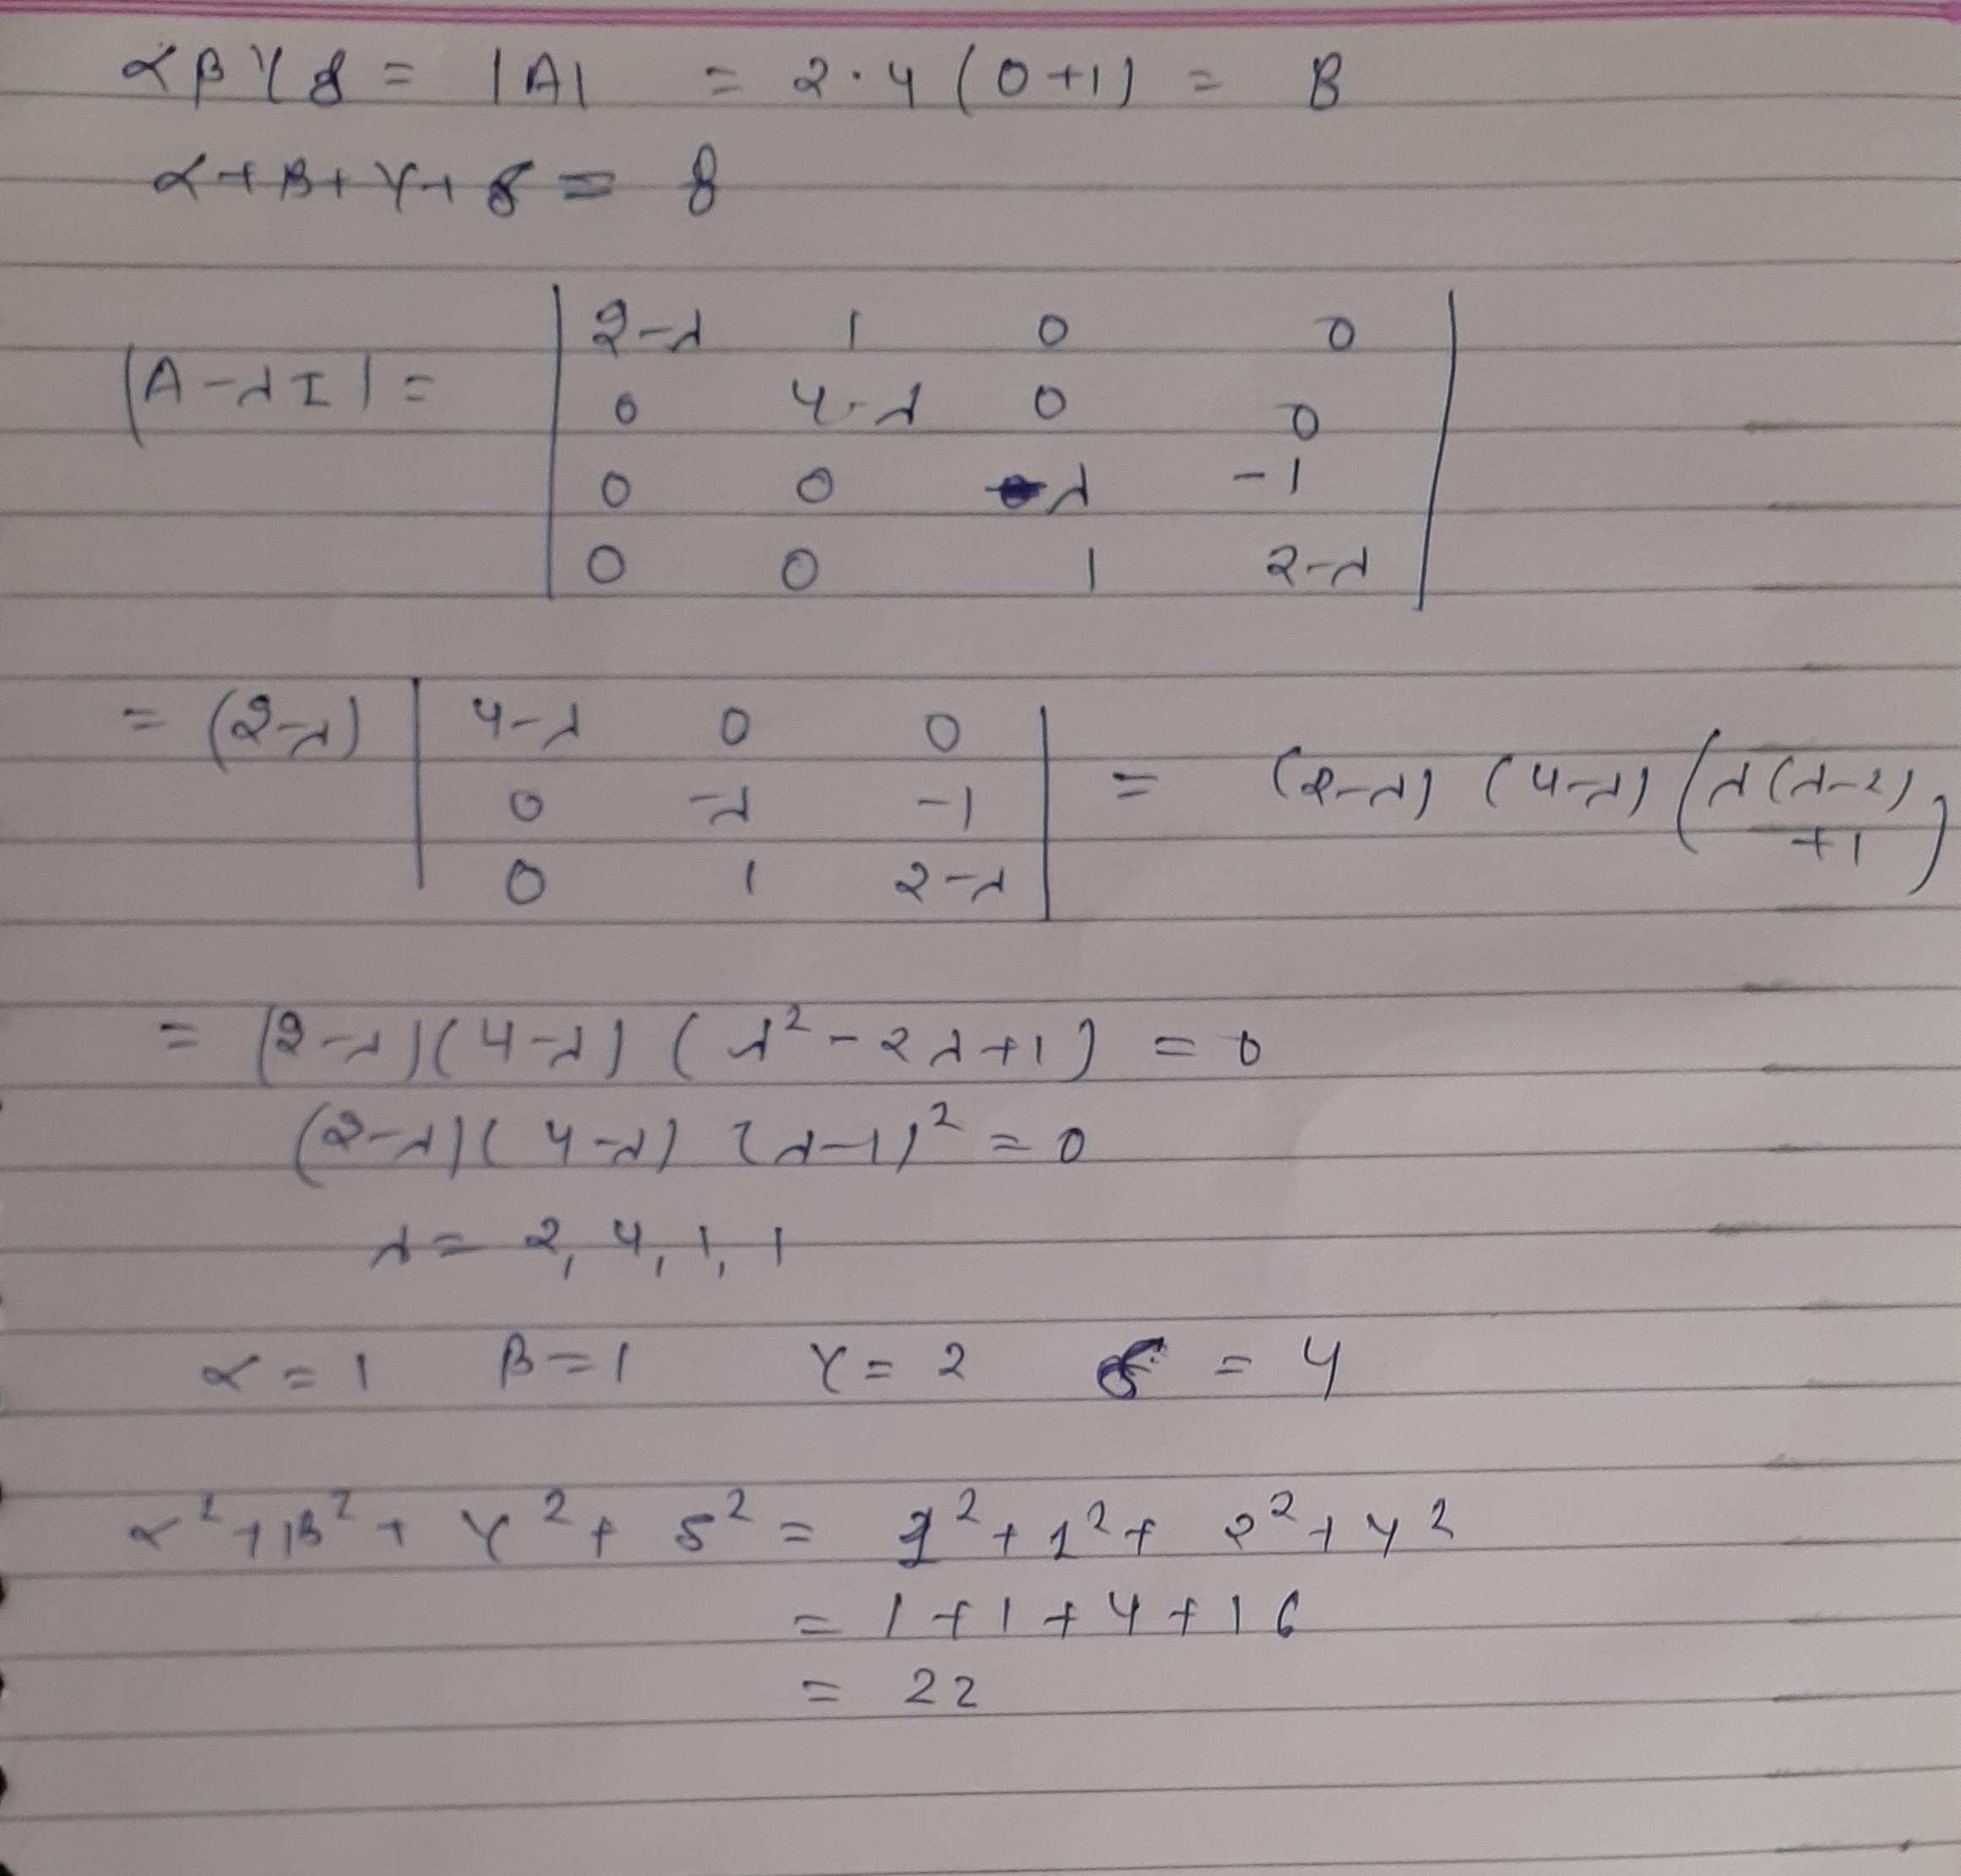 αβγδ = |A| = 2·4 (0+1) = 8
α+β+γ+δ = 8
|A-λI| =
2-λ 1 0 0
0 4-λ 0 0
0 0 -λ -1
0 0 1 2-λ
= (2-λ)
4-λ 0 0
0 -λ -1
0 1 2-λ
= (2-λ) (4-λ) (λ(λ-2) +1)
= (2-λ)(4-λ) (λ²-2λ+1) = 0
(2-λ)(4-λ) (λ-1)² = 0
λ = 2, 4, 1, 1
α = 1 β = 1 γ = 2 δ = 4
α²+β²+γ²+δ² = 1²+1²+2²+4²
= 1+1+4+16
= 22